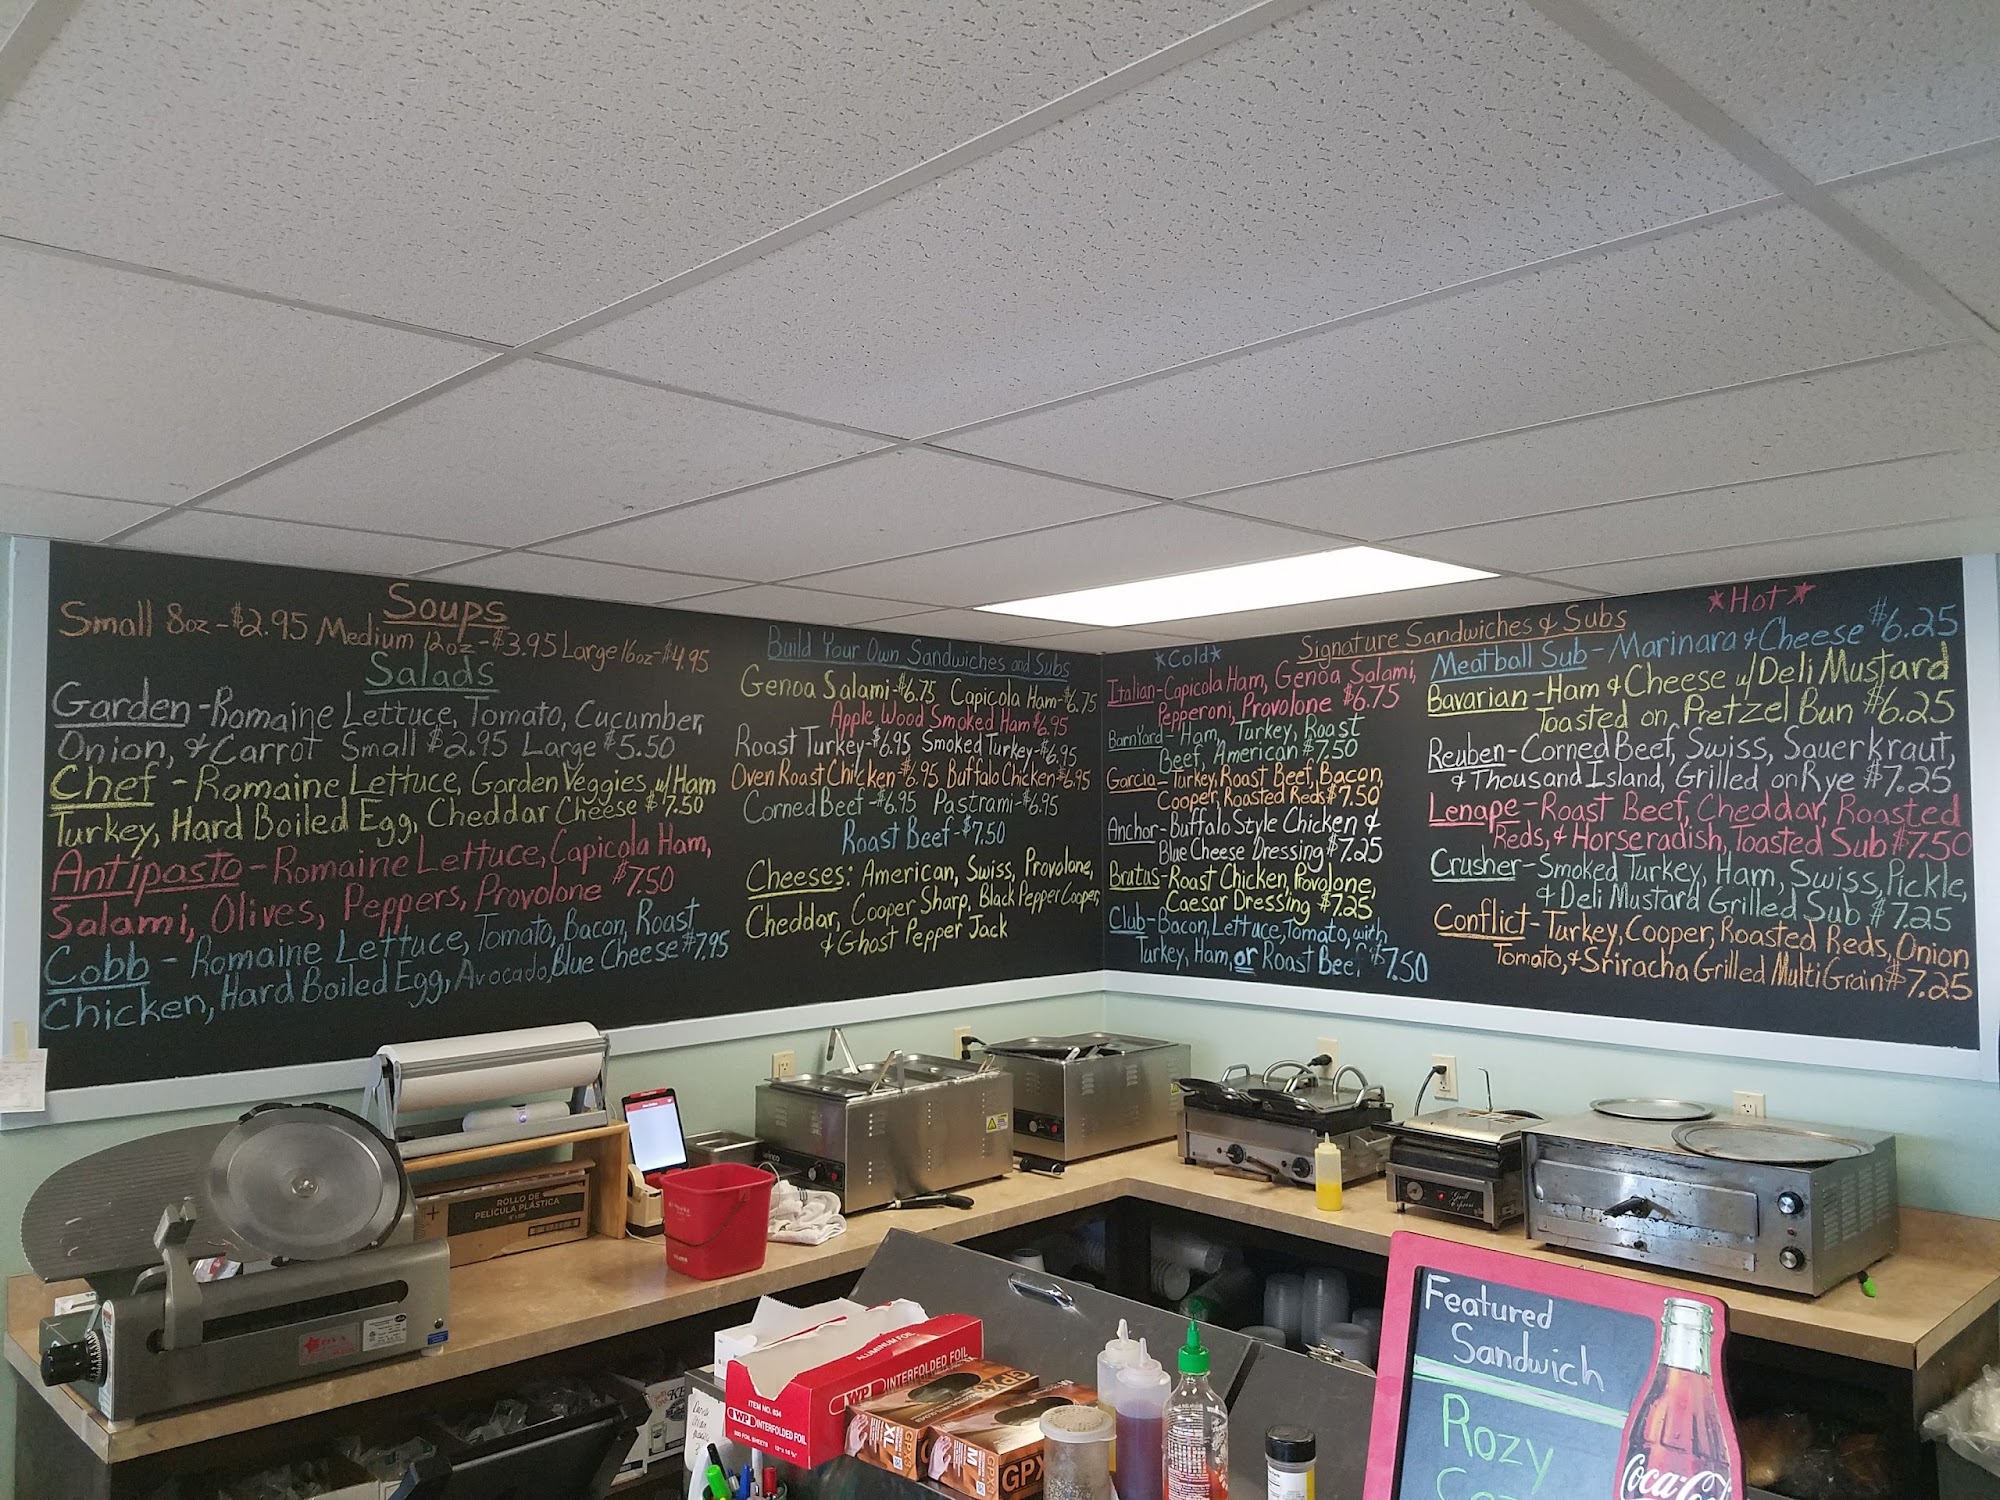 Soups
Small 8oz-$2.95 Medium 12oz-$3.95 Large 16oz-$4.95
Salads
Garden-Romaine Lettuce, Tomato, Cucumber,
Onion, & Carrot Small $2.95 Large $5.50
Chef-Romaine Lettuce, Garden Veggies, w/Ham
Turkey, Hard Boiled Egg, Cheddar Cheese $7.50
Antipasto-Romaine Lettuce, Capicola Ham,
Salami, Olives, Peppers, Provolone $7.50
Cobb-Romaine Lettuce, Tomato, Bacon, Roast
Chicken, Hard Boiled Egg, Avocado, Blue Cheese $7.95
Build Your Own Sandwiches and Subs
Genoa Salami-$6.75 Capicola Ham-$6.75
Apple Wood Smoked Ham $6.95
Roast Turkey-$6.95 Smoked Turkey-$6.95
Oven Roast Chicken-$6.95 Buffalo Chicken-$6.95
Corned Beef-$6.95 Pastrami-$6.95
Roast Beef-$7.50
Cheeses: American, Swiss, Provolone,
Cheddar, Cooper Sharp, Black Pepper Cooper,
& Ghost Pepper Jack
Signature Sandwiches & Subs
*Cold*
Italian-Capicola Ham, Genoa Salami,
Pepperoni, Provolone $6.75
BarnYard-Ham, Turkey, Roast
Beef, American $7.50
Garcia-Turkey, Roast Beef, Bacon,
Cooper, Roasted Reds $7.50
Anchor-Buffalo Style Chicken &
Blue Cheese Dressing $7.25
Brutus-Roast Chicken, Provolone,
Caesar Dressing $7.25
Club-Bacon, Lettuce, Tomato, with
Turkey, Ham, or Roast Beef $7.50
*Hot*
Meatball Sub-Marinara & Cheese $6.25
Bavarian-Ham & Cheese w/Deli Mustard
Toasted on Pretzel Bun $6.25
Reuben-Corned Beef, Swiss, Sauerkraut,
& Thousand Island, Grilled on Rye $7.25
Lenape-Roast Beef, Cheddar, Roasted
Reds, & Horseradish, Toasted Sub $7.50
Crusher-Smoked Turkey, Ham, Swiss, Pickle,
& Deli Mustard Grilled Sub $7.25
Conflict-Turkey, Cooper, Roasted Reds, Onion
Tomato, & Sriracha Grilled MultiGrain $7.25
ROLLO DE
PELÍCULA PLÁSTICA
winco
Grill
Express
ALUMINUM FOIL
WP INTERFOLDED FOIL
ITEM NO. 634
WP INTERFOLDED FOIL
500 FOIL SHEETS 12" x 10¾"
GPX3
XL
GPX3
M
GPX3
Featured
Sandwich
Rozy
Coca-Cola